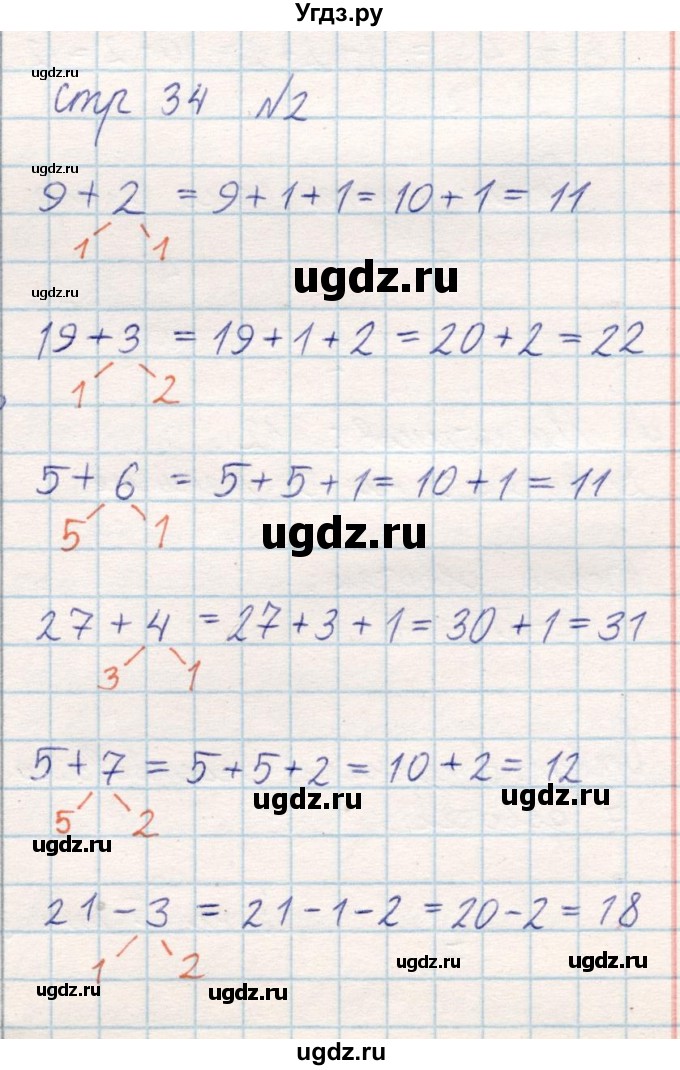 Угдз.ру
ugdz.ru
стр 34 №2
ugdz.ru
9 + 2 = 9 + 1 + 1 = 10 + 1 = 11
1 1
ugdz.ru
ugdz.ru
19 + 3 = 19 + 1 + 2 = 20 + 2 = 22
1 2
5 + 6 = 5 + 5 + 1 = 10 + 1 = 11
5 1
ugdz.ru
27 + 4 = 27 + 3 + 1 = 30 + 1 = 31
3 1
5 + 7 = 5 + 5 + 2 = 10 + 2 = 12
ugdz.ru ugdz.ru
5 2
ugdz.ru
21 - 3 = 21 - 1 - 2 = 20 - 2 = 18
1 2
ugdz.ru ugdz.ru
ugdz.ru ugdz.ru
ugdz.ru